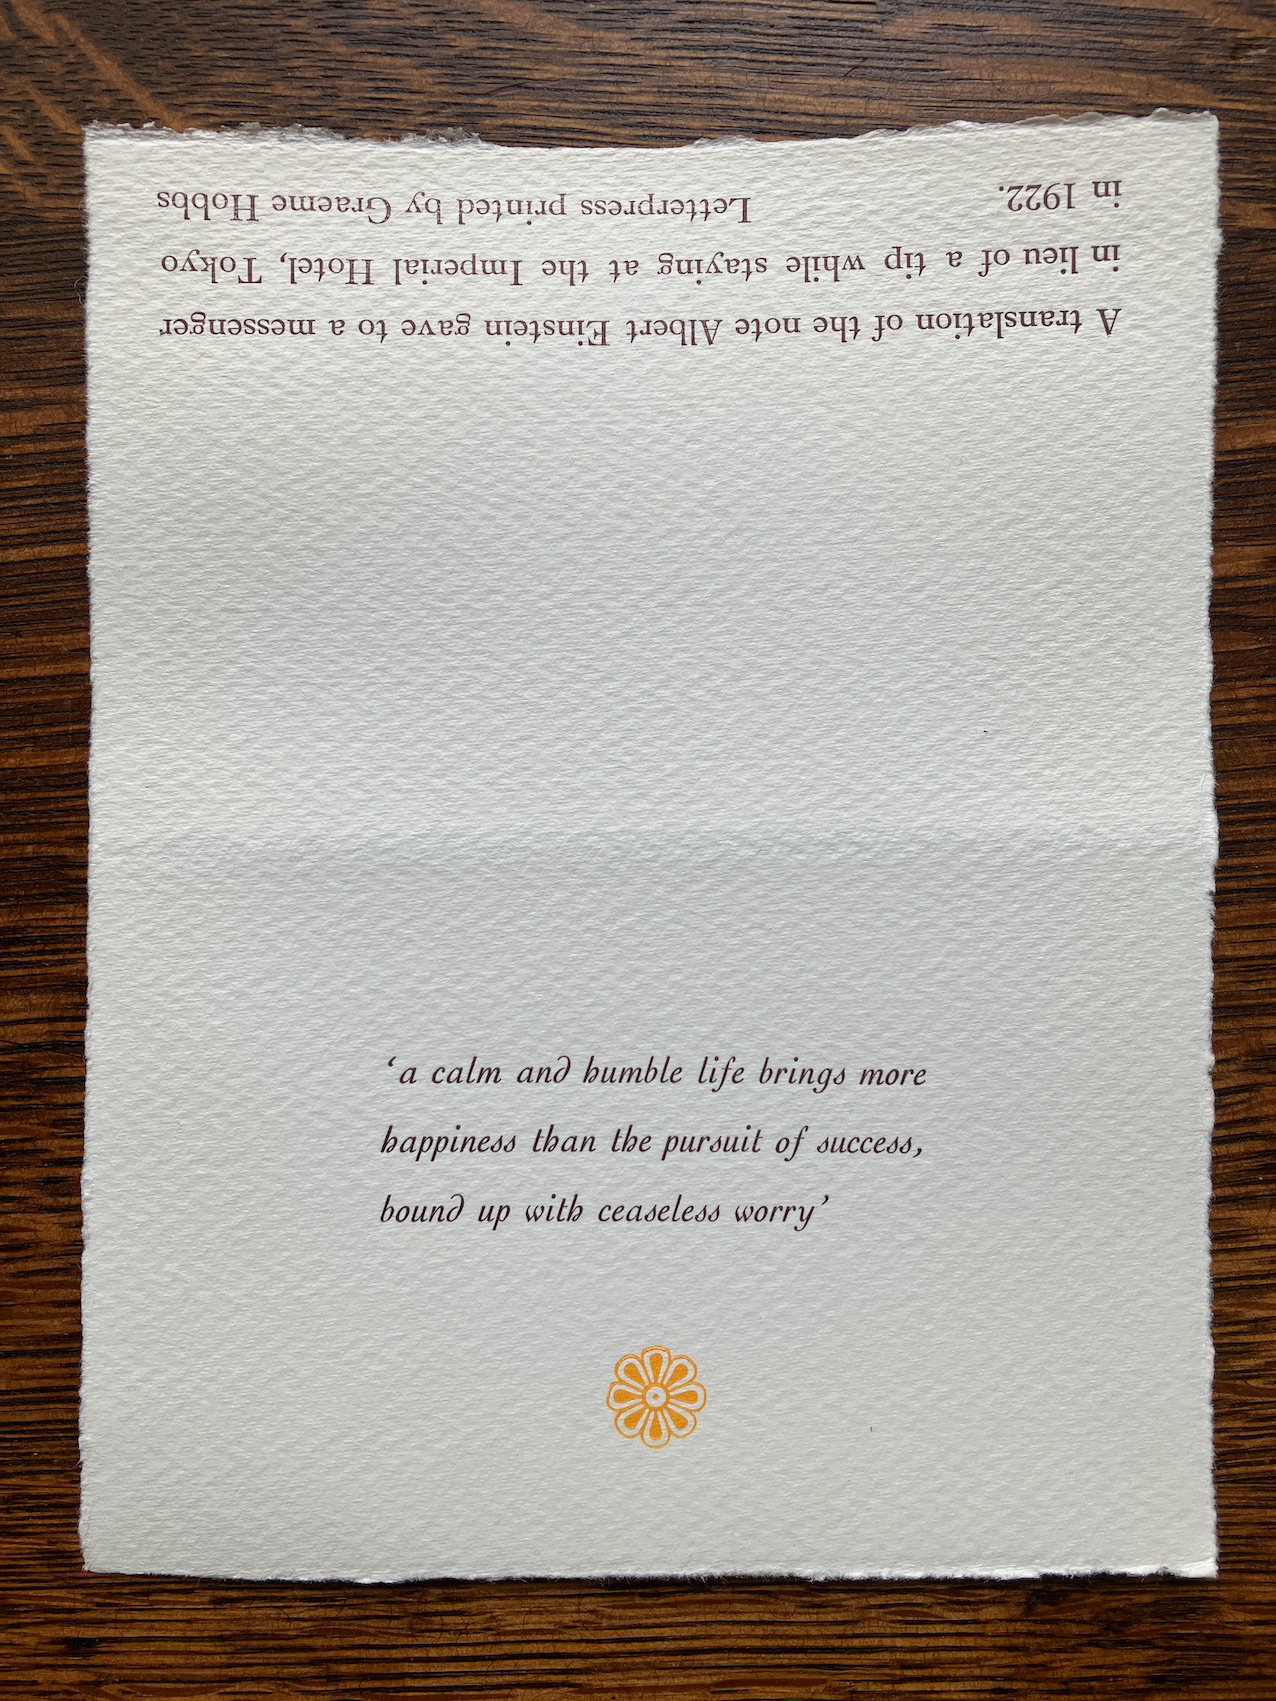 ‘a calm and humble life brings more
happiness than the pursuit of success,
bound up with ceaseless worry’
A translation of the note Albert Einstein gave to a messenger
in lieu of a tip while staying at the Imperial Hotel, Tokyo
in 1922. Letterpress printed by Graeme Hobbs